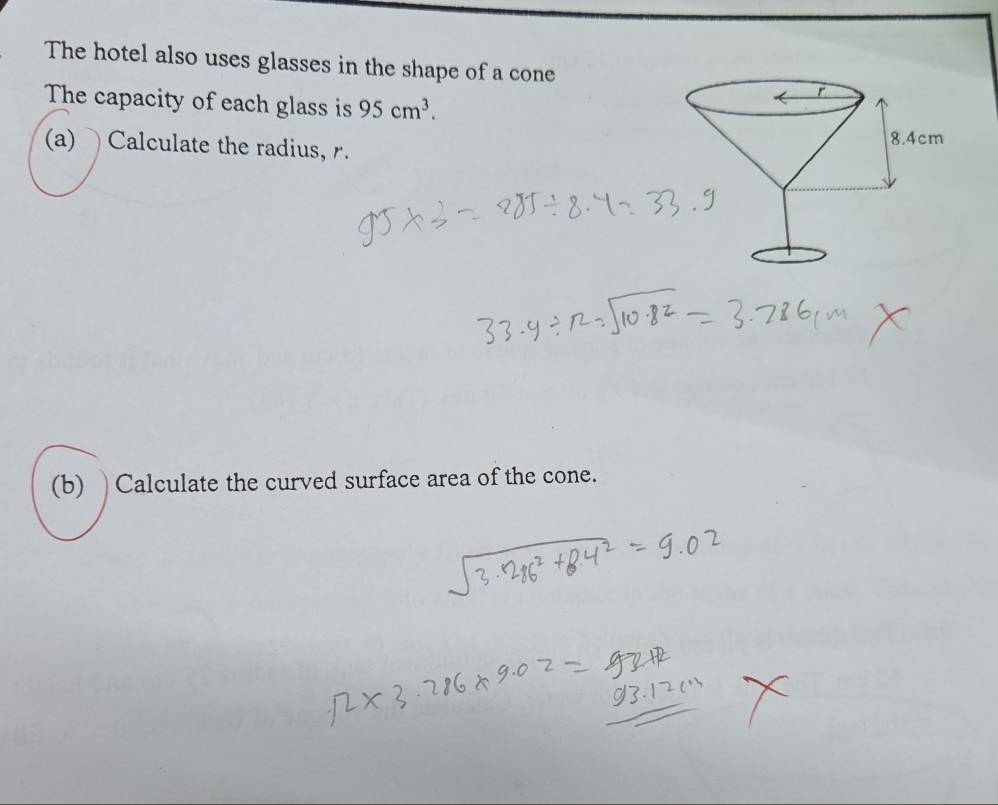 The hotel also uses glasses in the shape of a cone
The capacity of each glass is 95 cm³.
(a) Calculate the radius, r.
r
8.4cm
95 × 3 = 285 ÷ 8.4 = 33.9
33.9 ÷ π = √10.82 = 3.286cm
(b) Calculate the curved surface area of the cone.
√3.286² + 8.4² = 9.02
π × 3.286 × 9.02 =
93.12cm